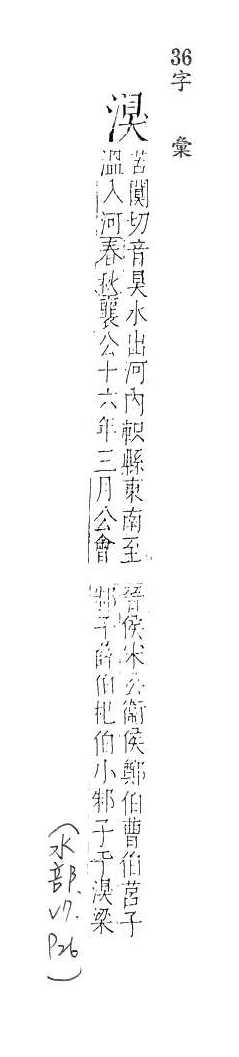 36字 彙
湨
苦闃切音狊水出河內軹縣東南至
溫入河春秋襄公十六年三月公會
晉侯宋公衞侯鄭伯曹伯莒子
邾子薛伯杞伯小邾子于湨梁
(水部. V7. P26)